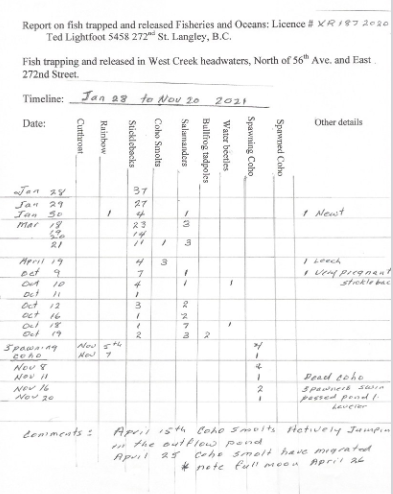 Report on fish trapped and released Fisheries and Oceans: Licence # XR 187 2020
Ted Lightfoot 5458 272nd St. Langley, B.C.
Fish trapping and released in West Creek headwaters, North of 56th Ave. and East
272nd Street.
Timeline: Jan 28 to Nov 20 2021
Date: Cutthroat Rainbow Sticklebacks Coho Smolts Salamanders Bullfrog tadpoles Water beetles Spawning Coho Spawned Coho Other details
Jan 28 37
Jan 29 27
Jan 30 1 4 1 1 Newt
Mar 18 23 3
19 14
21 11 1 3
April 19 4 3 1 Leech
Oct 9 7 1 1 very pregnant
Oct 10 4 1 1 stickleбac
Oct 11 1
Oct 12 3 2
Oct 16 1 2
Oct 18 1 7 1
Oct 19 2 3 2
Spawning Nov 5th 4
Coho Nov 7 1
Nov 8 2
Nov 11 1 Dead coho
Nov 16 2 Spawners swim
Nov 20 1 passed pond 1
Comments: April 15th Coho smolts Actively Jumpin
in the outflow pond
April 25 Coho smolt have migrated
* note full moon April 26